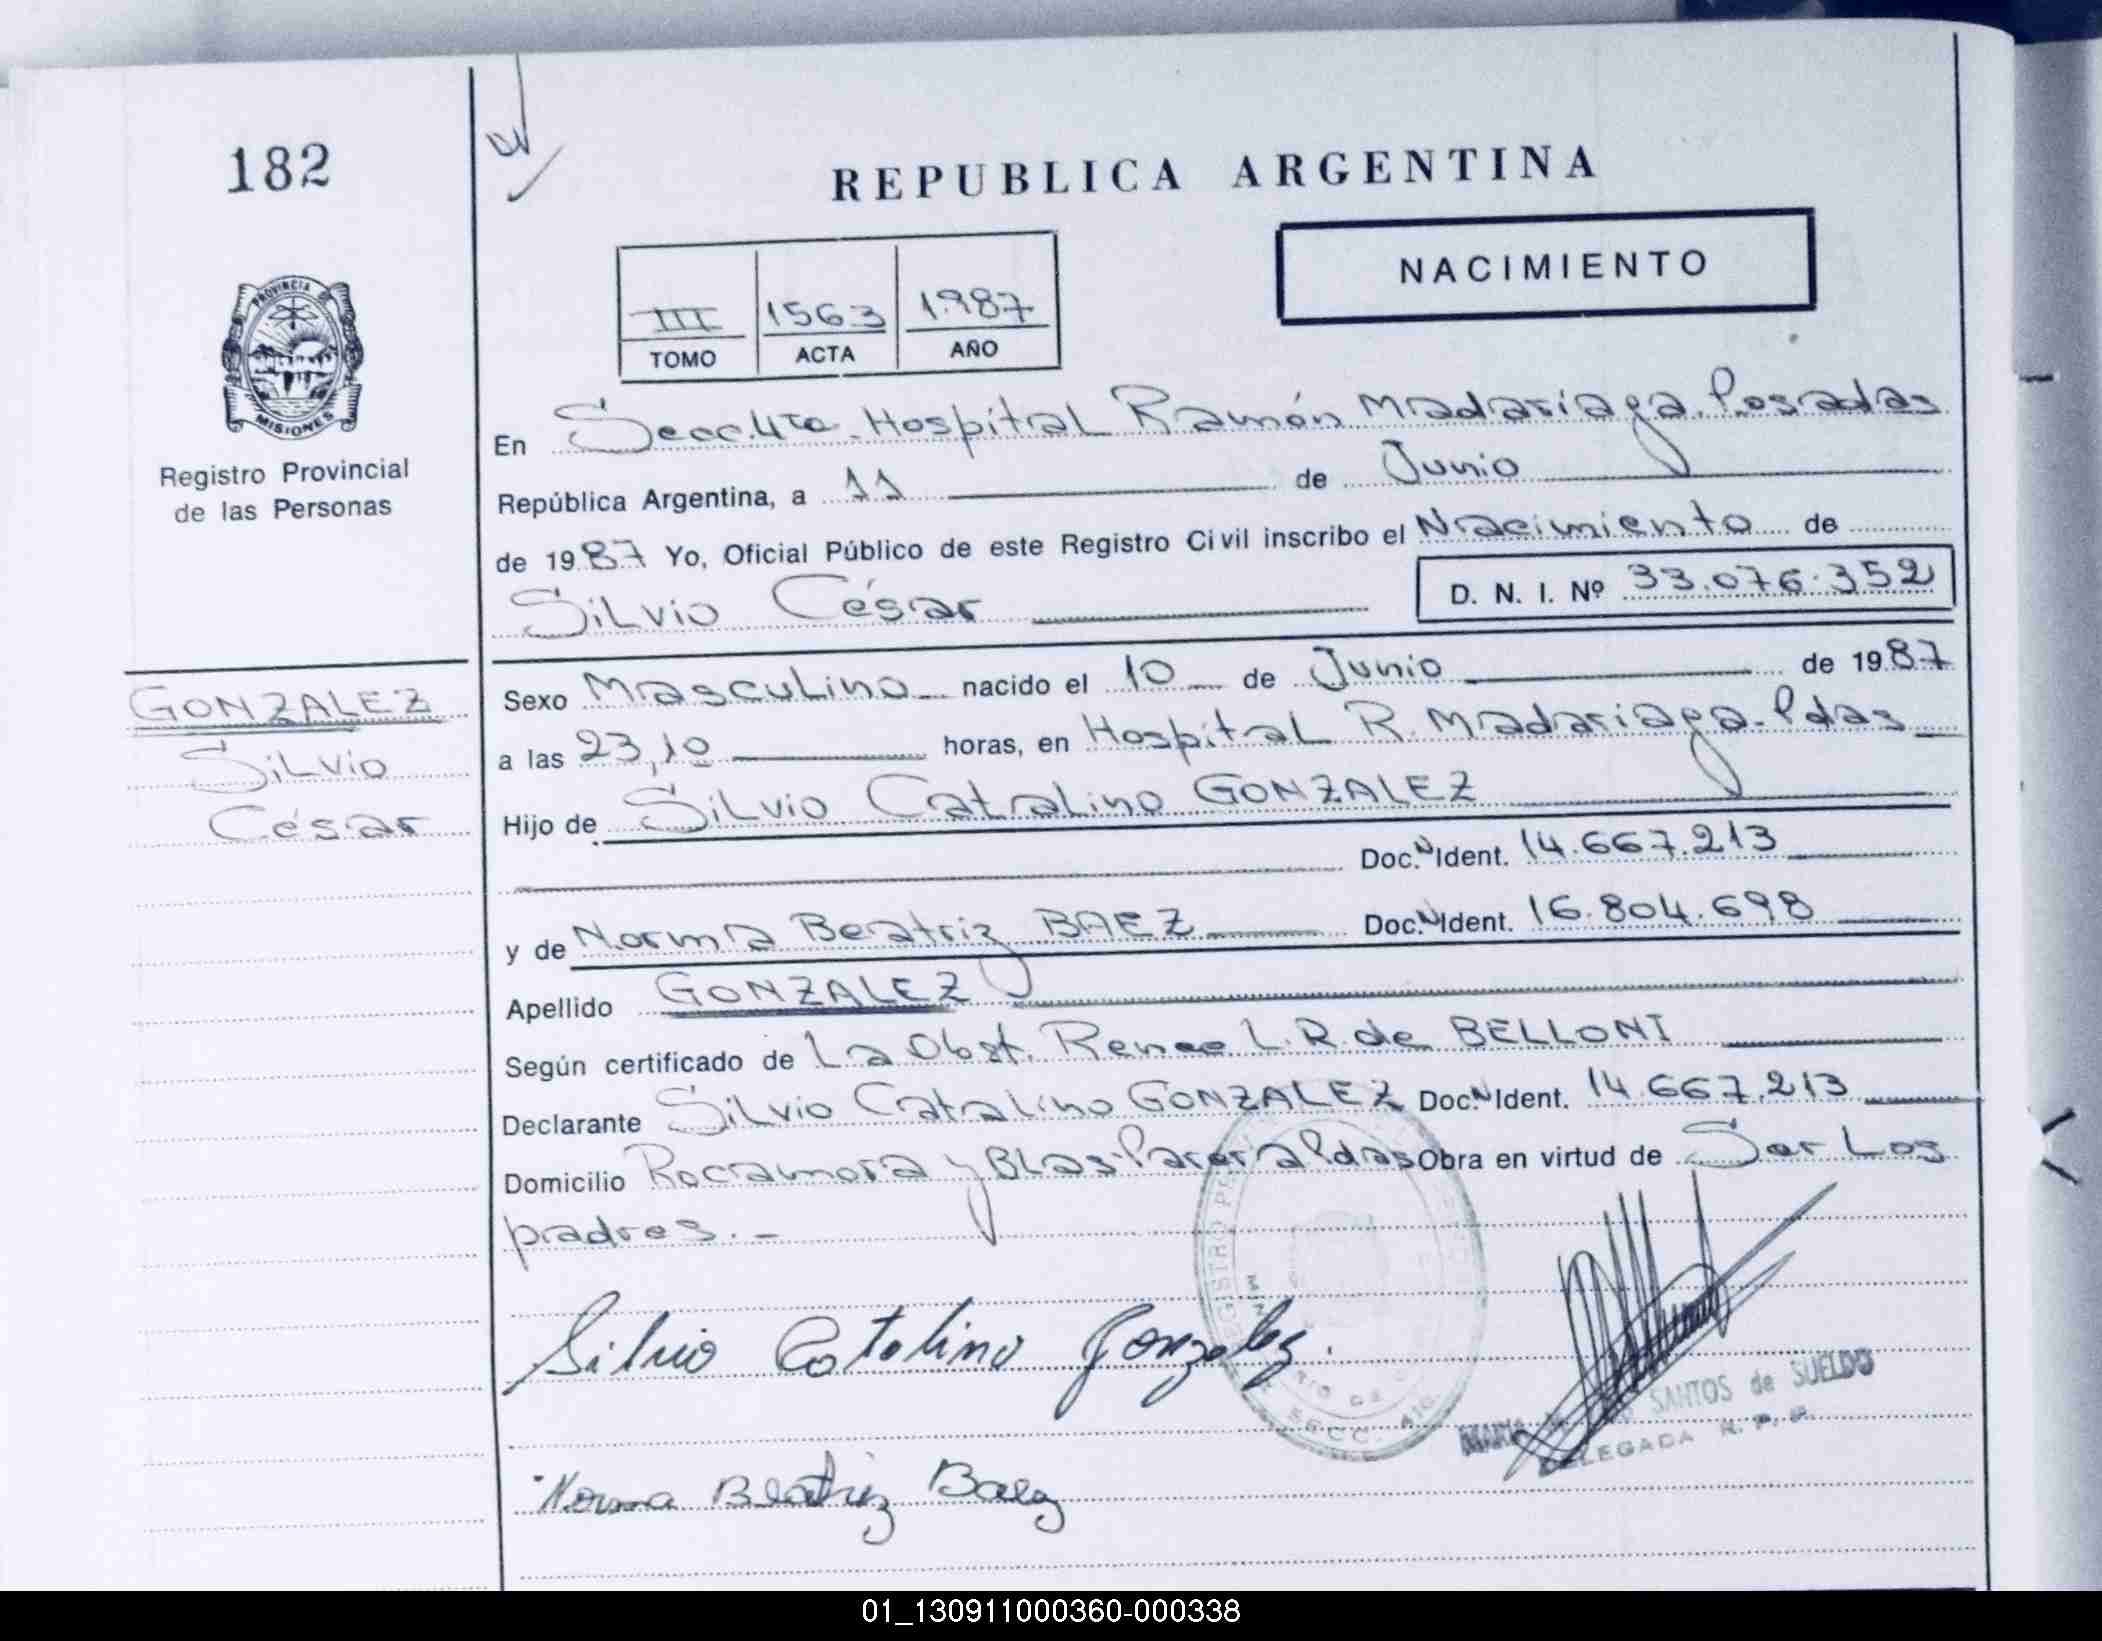 182
REPUBLICA ARGENTINA
NACIMIENTO
III 1563 1.987
TOMO ACTA AÑO
PROVINCIA DE
MISIONES
Registro Provincial
de las Personas
En Secc. 4ta. Hospital Ramón Madariaga. Posadas
República Argentina, a 11 de Junio
de 1987 Yo, Oficial Público de este Registro Civil inscribo el Nacimiento de
Silvio César
D. N. I. Nº 33.076.352
GONZALEZ
Silvio
César
Sexo Masculino nacido el 10 de Junio de 1987
a las 23,10 horas, en Hospital R. Madariaga. Pdas
Hijo de Silvio Catalino GONZALEZ
Doc. N Ident. 14.667.213
y de Norma Beatriz BAEZ Doc. N Ident. 16.804.698
Apellido GONZALEZ
Según certificado de La Obst. Renee L. R. de BELLONI
Declarante Silvio Catalino GONZALEZ Doc. N Ident. 14.667.213
Domicilio Rocamora y Blas Parera Pdas Obra en virtud de Ser Los
padres. -
Silvio Catalino Gonzalez.
SANTOS de SUELDO
DELEGADA R. P. P.
Norma Beatriz Baez
01_130911000360-000338